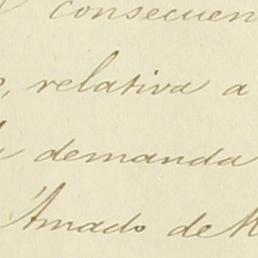 consecuen
, relativa a
demanda
Amado de M